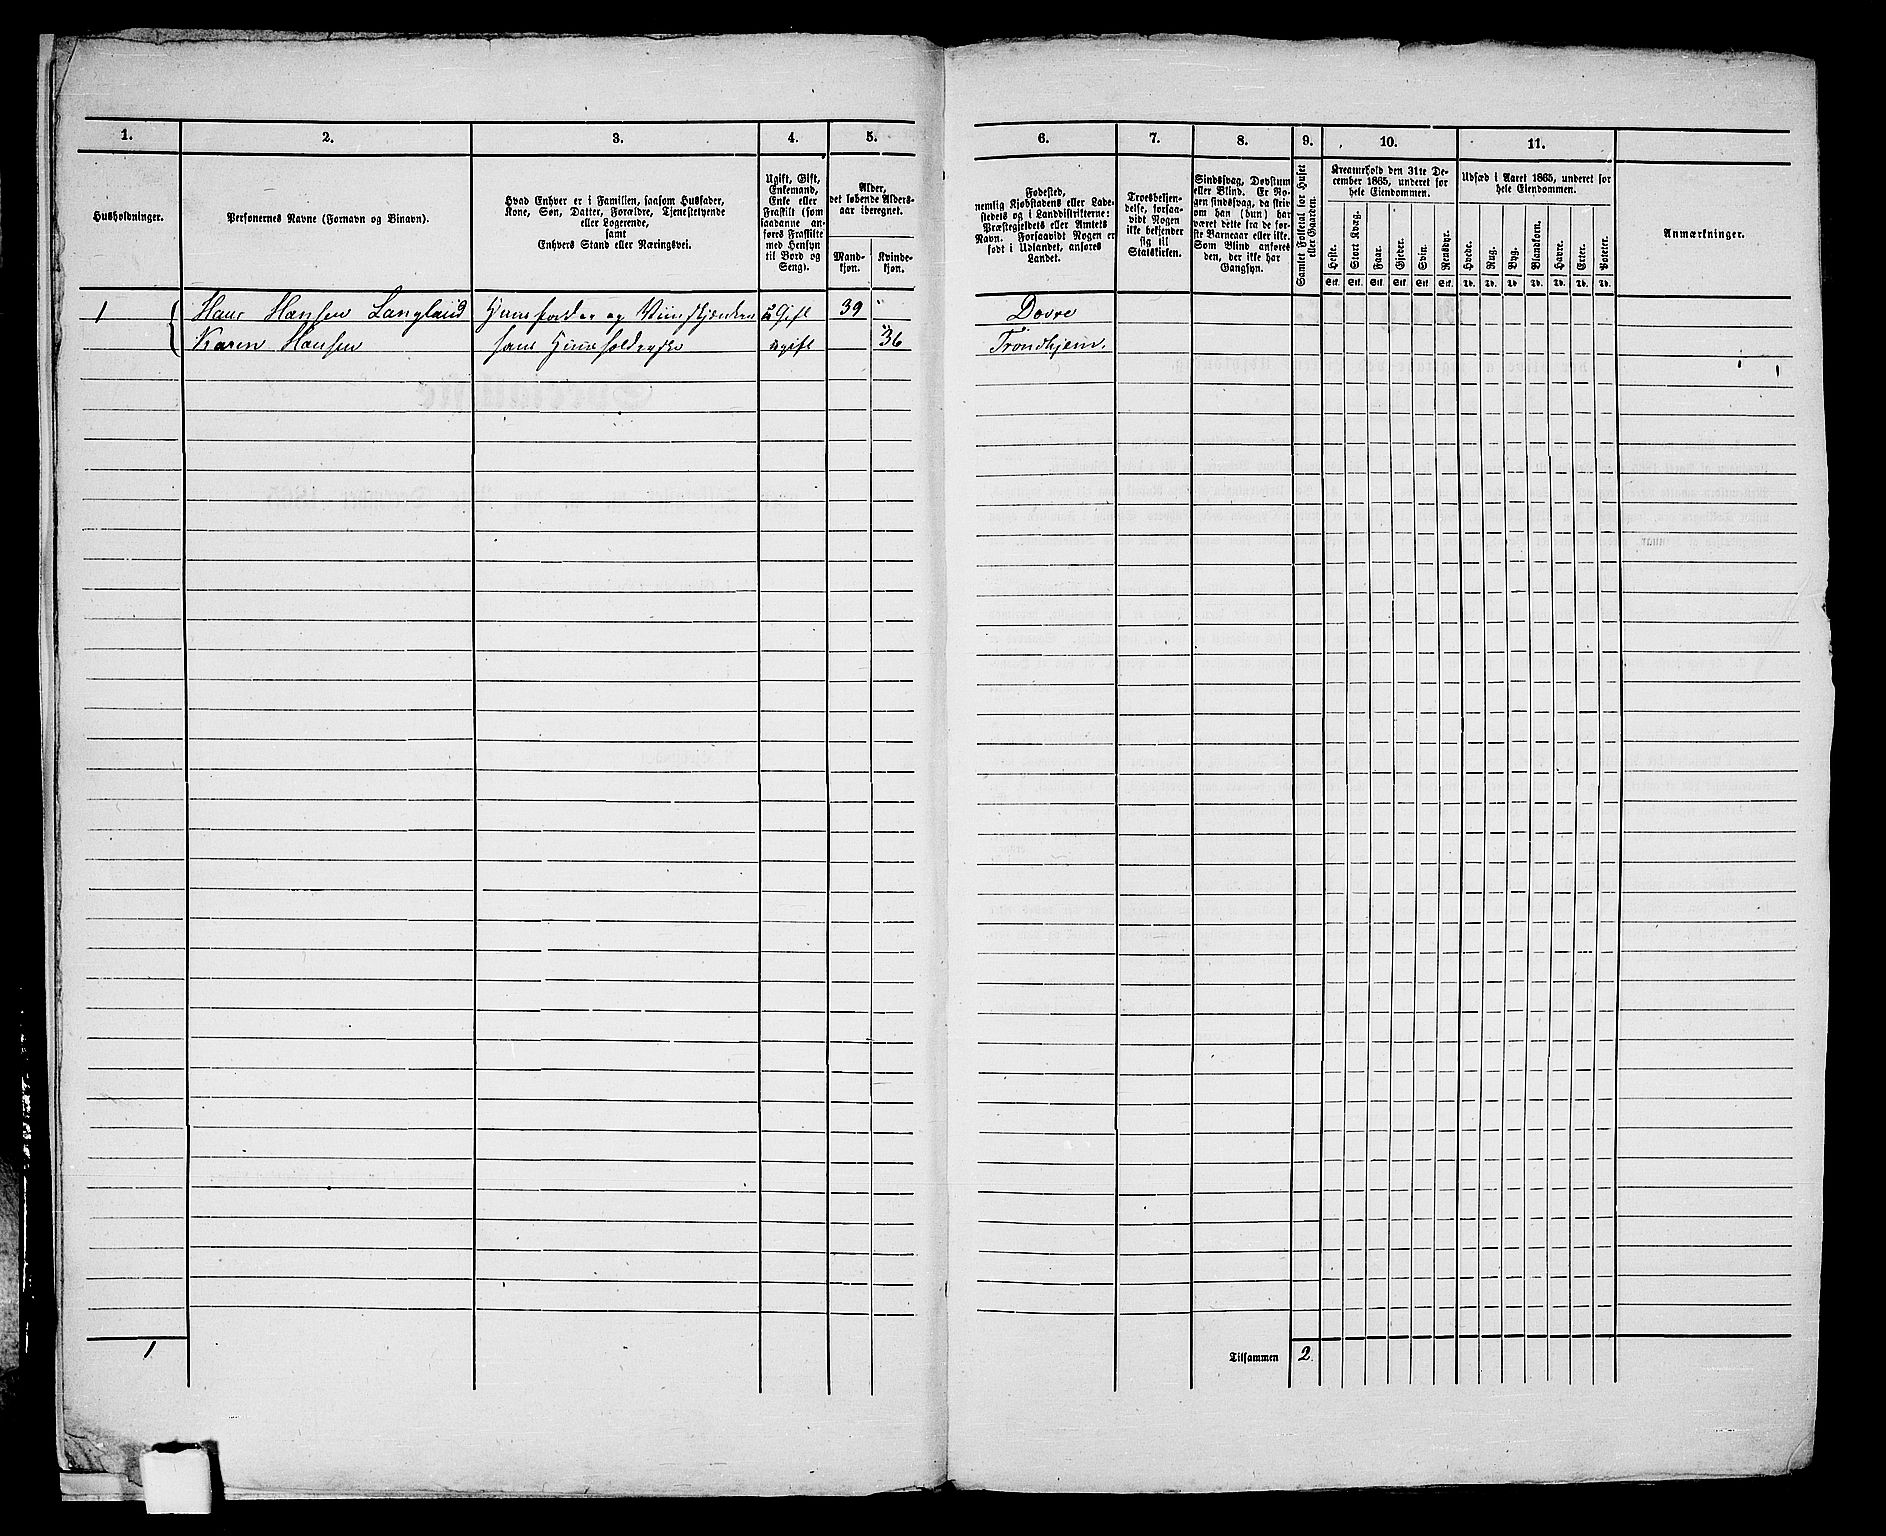 1. 2. 3. 4. 5. 6. 7. 8. 9. 10. 11.
Husholdninger.
Personernes Navne (Fornavn og Binavn).
Hvad Enhver er i Familien, saasom Husfader,
Kone, Søn, Datter, Forældre, Tjenestetyende
eller Logerende,
samt
Enhvers Stand eller Næringsvei.
Ugift, Gift,
Enkemand,
Enke eller
Fraskilt (som
saadanne an-
føres Fraskilte
med Hensyn
til Bord og
Seng).
Alder,
det løbende Alders-
aar iberegnet.
Mand-
kjøn.
Kvinde-
kjøn.
Fødested,
nemlig Kjøbstadens eller Lade-
stedets og i Landdistrikterne:
Præstegjeldets eller Amtets
Navn. Forsaavidt Nogen er
født i Udlandet, anføres
Landet.
Troesbekjen-
delse, forsaa-
vidt Nogen
ikke bekjender
sig til
Statskirken.
Sindssvag, Døvstum
eller Blind. Er No-
gen sindssvag, da skriv
om han (hun) har
været dette fra de før-
ste Barneaar eller ikke.
Som Blind anføres
den, der ikke har
Gangsyn.
Samlet Folketal for Huset
eller Gaarden.
Kreaturhold den 31te De-
cember 1865, underet for
hele Eiendommen.
Heste. Stort Kvæg. Faar. Gjeder. Svin. Rensdyr.
Stk. Stk. Stk. Stk. Stk. Stk.
Udsæd i Aaret 1865, underet for
hele Eiendommen.
Hvede. Rug. Byg. Blandkorn. Havre. Erter. Poteter.
Td. Td. Td. Td. Td. Td. Td.
Anmærkninger.
1 Hans Hansen Langland Huusfader og Gift 39 " Dovre
Karen Hansen hans ugift " 36 Trondhjem.
1 Tilsammen 2.